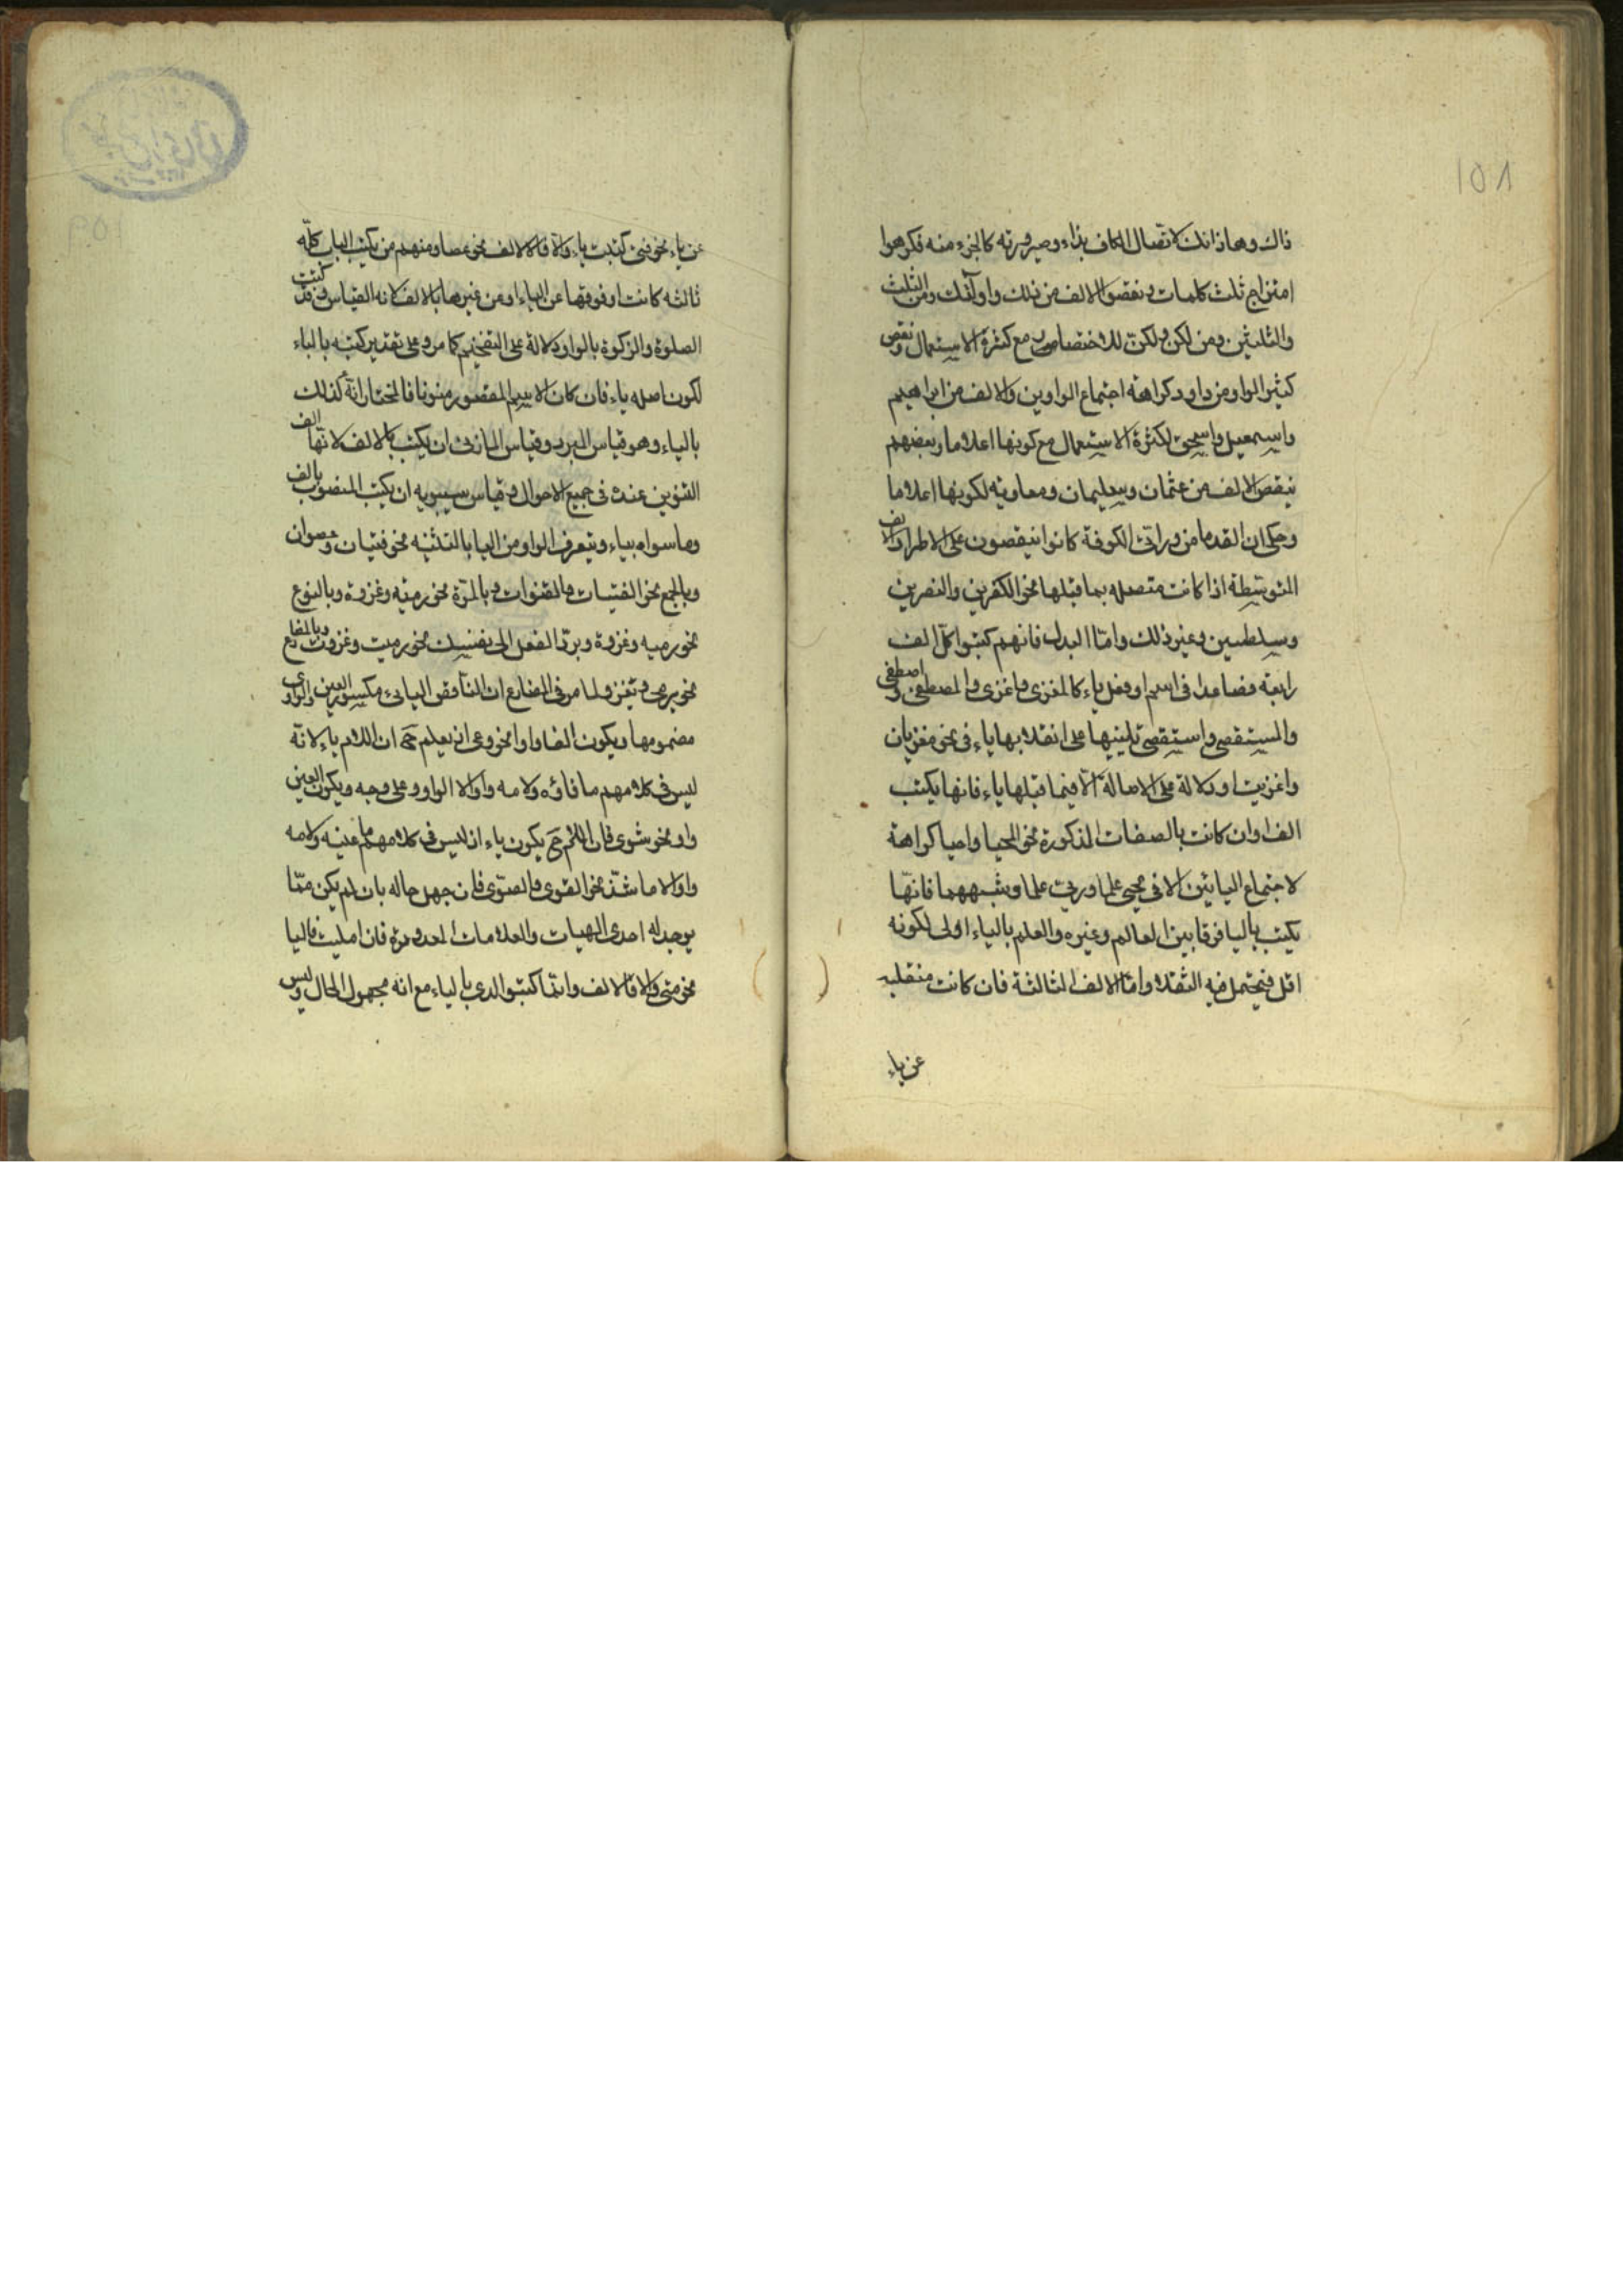 ذاك وهاذانك لاتصال الكاف بذاء وصيرورته كالجزء منه فكرهوا
امتزاج ثلث كلمات ونقصوا الالف من ذلك واولئك ومن الثلث
والثلثين ومن لكن ولكنّ للاختصار مع كثرة الاستعمال ونقص
كثير الواو من داود كراهة اجتماع الواوين والالف من ابراهيم
واسمعيل واسحق لكثرة الاستعمال مع كونها اعلاما وبعضهم
ينقص الالف من عثمان وسليمان ومعاوية لكونها اعلاما
وحكى ان القدما من وراقى الكوفة كانوا ينقصون على الاطراد الالف
المتوسطة اذا كانت متصله بما قبلها نحو الكفرين والنصرين
وسلطين وغير ذلك وامّا البدل فانهم كتبوا كلّ الف
رابعة فصاعدا فى اسم او فعل ياء كالمغزى واغزى والمصطفى واصطفى
والمستقصى واستقصى تلبيها على انقلابها ياء فى نحو مغزيان
واغزيت او دلالة على الامالة الّا فيما قبلها ياء فانها يكتب
الفا وان كانت بالصفات المذكورة نحو المحيا واحيا كراهة
لاجتماع اليائين الا فى يحيى علما وريى علما وشبههما فانّها
يكتب باليا فرقا بين العالم وغيره والعلم بالياء اولى لكونه
اقل فيحتمل فيه الثقلا وامّا الالف الثالثة فان كانت منقلبه
عن ياء
عن ياء نحو فتى كتبت ياء والّا فالالف نحو عصا ومنهم من يكتب الباب كلّه
ثالثه كانت او فوقها عن الياء او من غيرها بالالف لانه القياس وقد كتبت
الصلوة والزكوة بالواو دلالة على التفخيم كما مر وعلى تقدير كتبه بالياء
لكون اصله ياء فان كان الاسم المقصور منونا فالمختار انه كذلك
بالياء وهو قياس المبرد وقياس المازنى ان يكتب بالالف لانها الف
التنوين عنده فى جميع الاحوال وقياس سيبويه ان يكتب المنصوب بالف
وما سواه بياء ويتعرف الواو من اليا بالتثنيه نحو فتيان وعصوان
وبالجمع نحو الفتيات والقنوات وبالمرّة نحو رمية وغزوة وبالنوع
نحو رميه وغزوة وبردّ الفعل الى نفسك نحو رميت وغزوت وبالمضارع
نحو يرمى ويغزو لما مر فى المضارع ان الناقص اليائى مكسور العين والواوى
مضمومها وبكون الفا واوا نحو وعى اذ يعلم ح ان اللام ياء لانّه
ليس فى كلامهم ما فاؤه ولامه واوالا الواو وعلى وجه وبكون العين
واو نحو شوى فان اللام ح يكون ياء اذ ليس فى كلامهم ما عينه ولامه
واوالا ما شذّ نحو القوى والصوى فان جهل حاله بان لم يكن ممّا
يوجد له احدى الهيات والعلامات المعدودة فان اميلت فاليا
نحو متى والا فالالف وانمّا كتبوا لدى بالياء مع انه مجهول الحال وليس
١٥٨